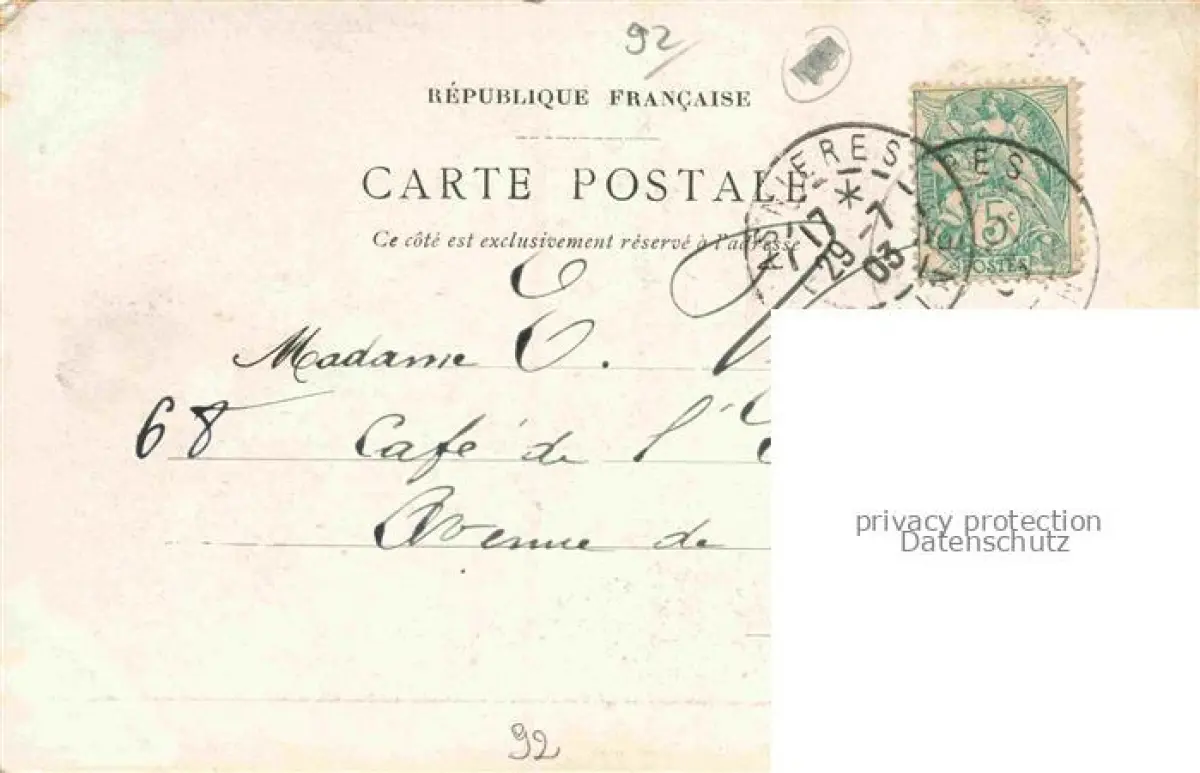 92
RÉPUBLIQUE FRANÇAISE
CARTE POSTALE
Ce côté est exclusivement réservé à l'adresse
ASNIERES
17 * 29 -7 03
RES
5c
POSTES
Madame C.
68 Café de l'
Avenue de
privacy protection
Datenschutz
92